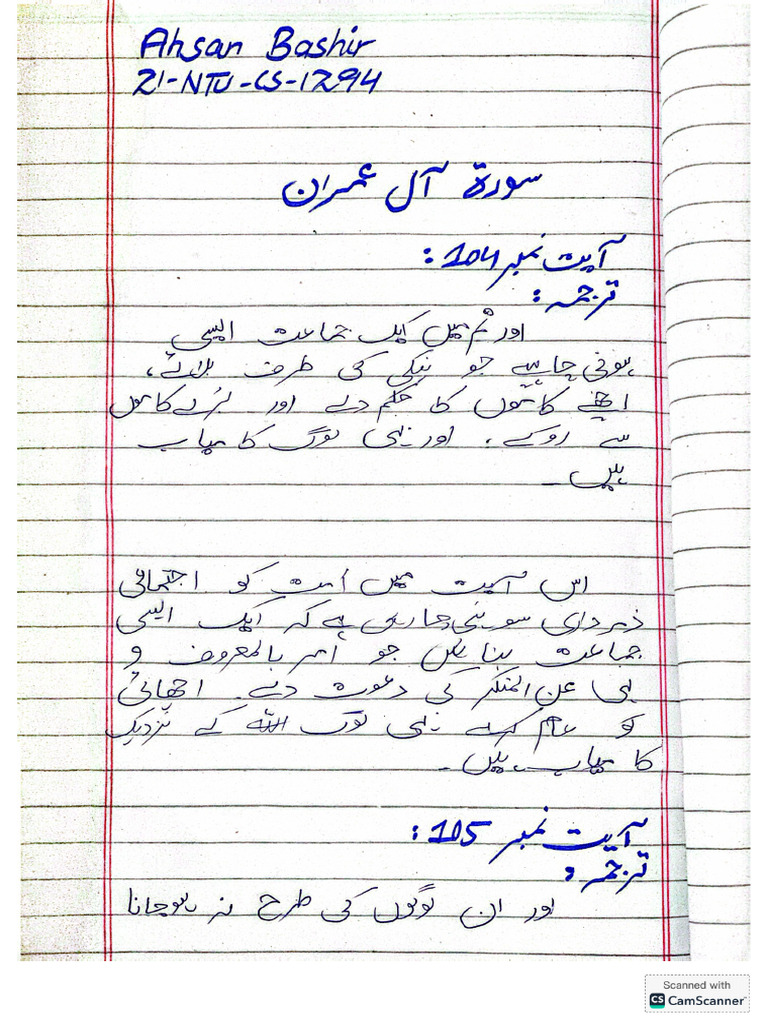 Ahsan Bashir
21-NTU-CS-1294
سورة آل عمران
آیت نمبر 104:
ترجمہ:
اور تم میں ایک جماعت ایسی
ہونی چاہیے جو نیکی کی طرف بلائے،
اچھے کاموں کا حکم دے اور بُرے کاموں
سے روکے، اور یہی لوگ کامیاب
ہیں۔
اس آیت میں اُمت کو اجتماعی
ذمہ داری سونپی جا رہی ہے کہ ایک ایسی
جماعت بنائیں جو امر بالمعروف و
نہی عن المنکر کی دعوت دے۔ اچھائی
کو عام کرے یہی لوگ اللہ کے نزدیک
کامیاب ہیں۔
آیت نمبر 105:
ترجمہ:
اور ان لوگوں کی طرح نہ ہو جانا
Scanned with
CS CamScanner